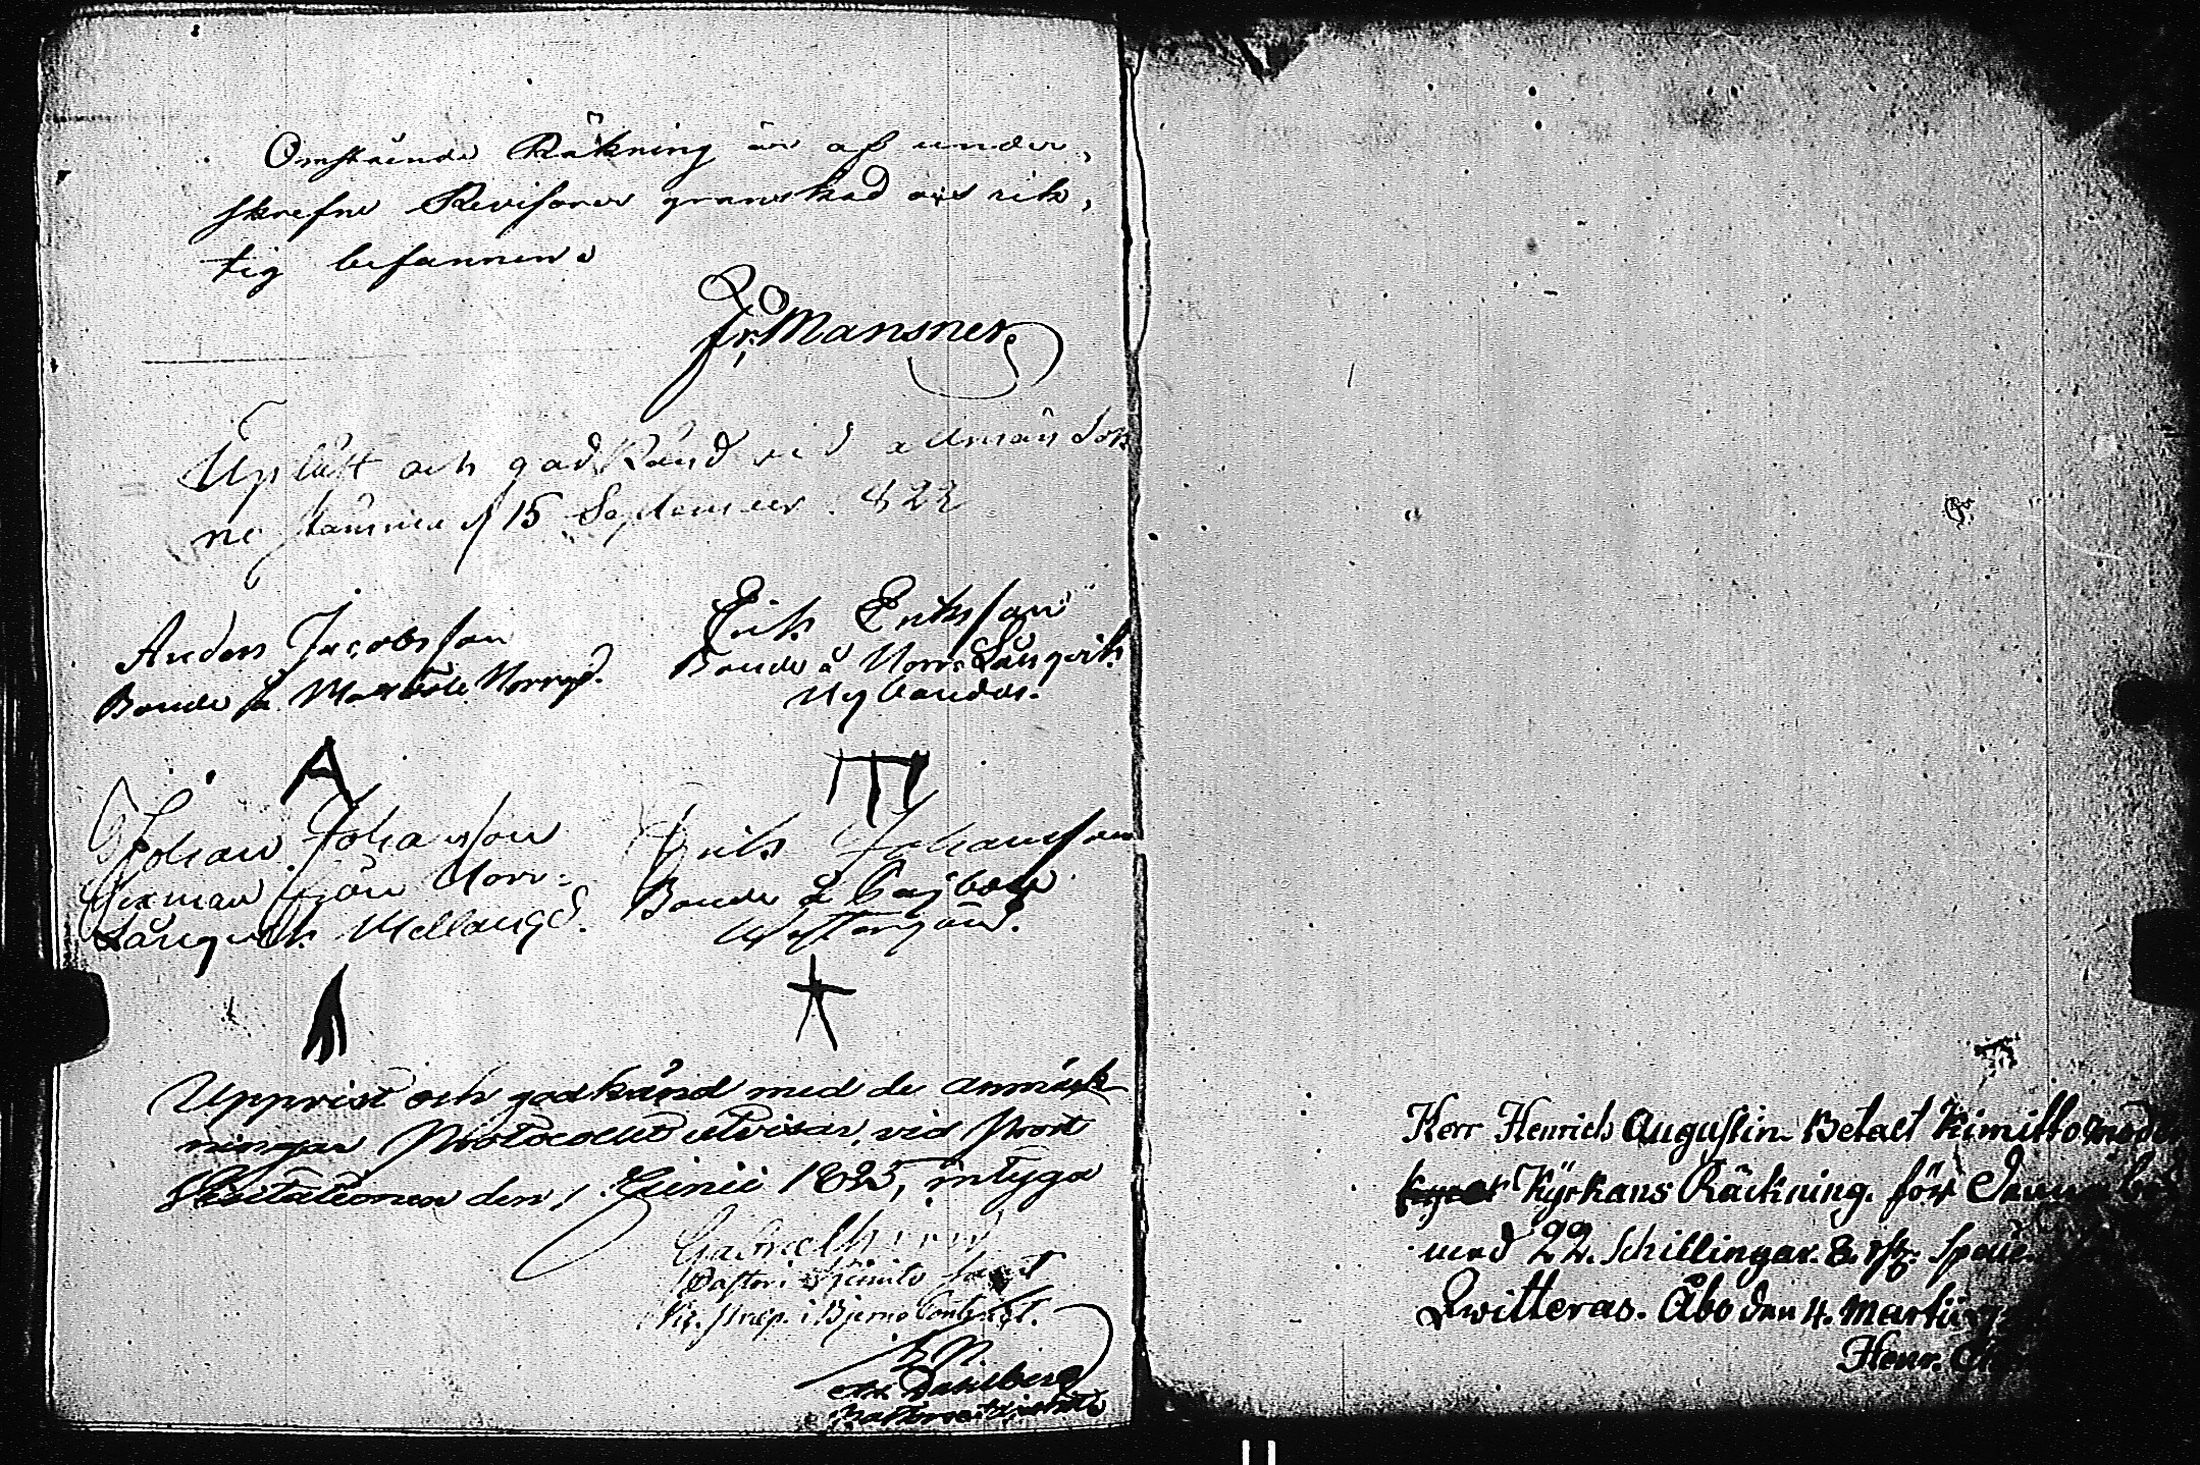 Omstående Räkning är af under,
skrefne Revisorer granskad och rik,
tig befunnen.
Fr: Mansner
Upläst och godkänd vid allmän Sok
ne stämma d 15 September 1822
Anders Jacobsson
Bonde på Norrgd.
Erik Eriksson
Bonde å Norr Långvik
Nybondas.
A
Johan Johansson
Sexman från Norr-
Långvik Mellangd.
Erik Johansson
Bonde å
Westergård.
Upvist och godkänd med de anmärk-
ningar Protocollet utvisar, vid Prost
Visitationen den 1 Junii 1825, intyga
Gabriel
Pastor i Kimito samt
i Bjerno Contract.
Dahlberg
Herr Henrich Augustin Betalt Kimitto moder
Kyrkans Räckning. för
med 22. Schillingar. 8.
Qwitteras. Åbo den 4. Martii
Henr.